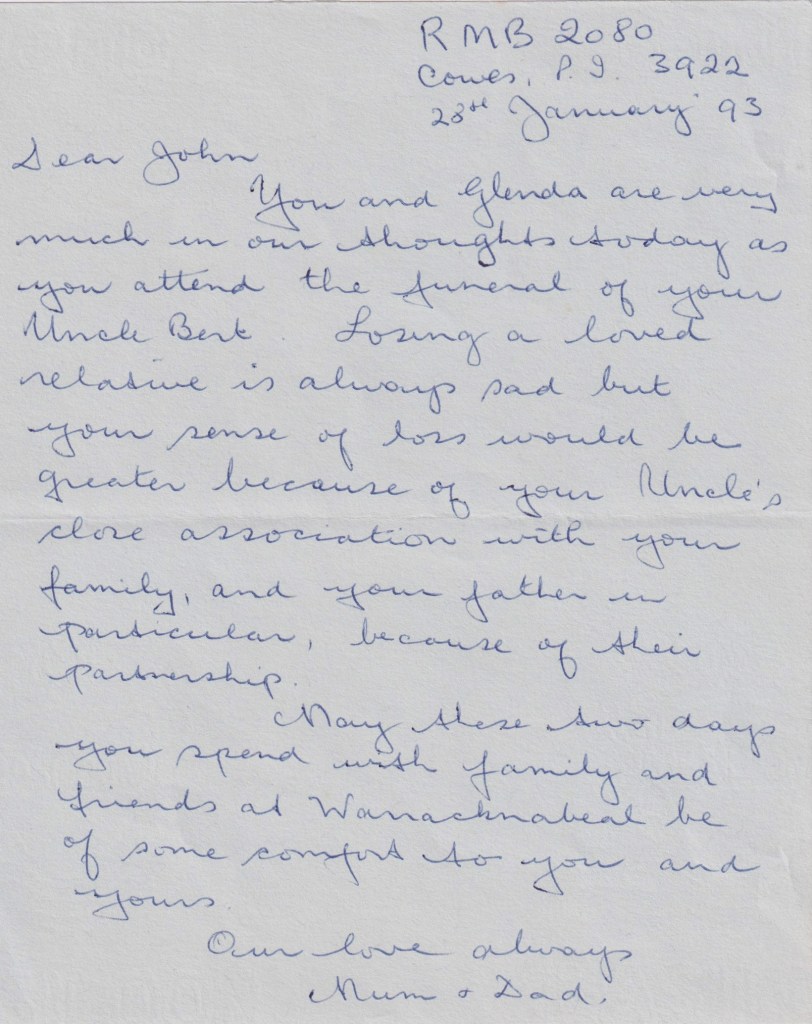 RMB 2080
Cowes, P.I. 3922
28th January '93
Dear John
You and Glenda are very
much in our thoughts today as
you attend the funeral of your
Uncle Bert. Losing a loved
relative is always sad but
your sense of loss would be
greater because of your Uncle's
close association with your
family, and your father in
particular, because of their
partnership.
May these two days
you spend with family and
friends at Warracknabeal be
of some comfort to you and
yours.
Our love always
Mum & Dad.